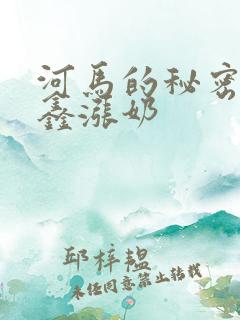 河马的秘密
鑫涨奶
邱梓韫
未经同意禁止转载